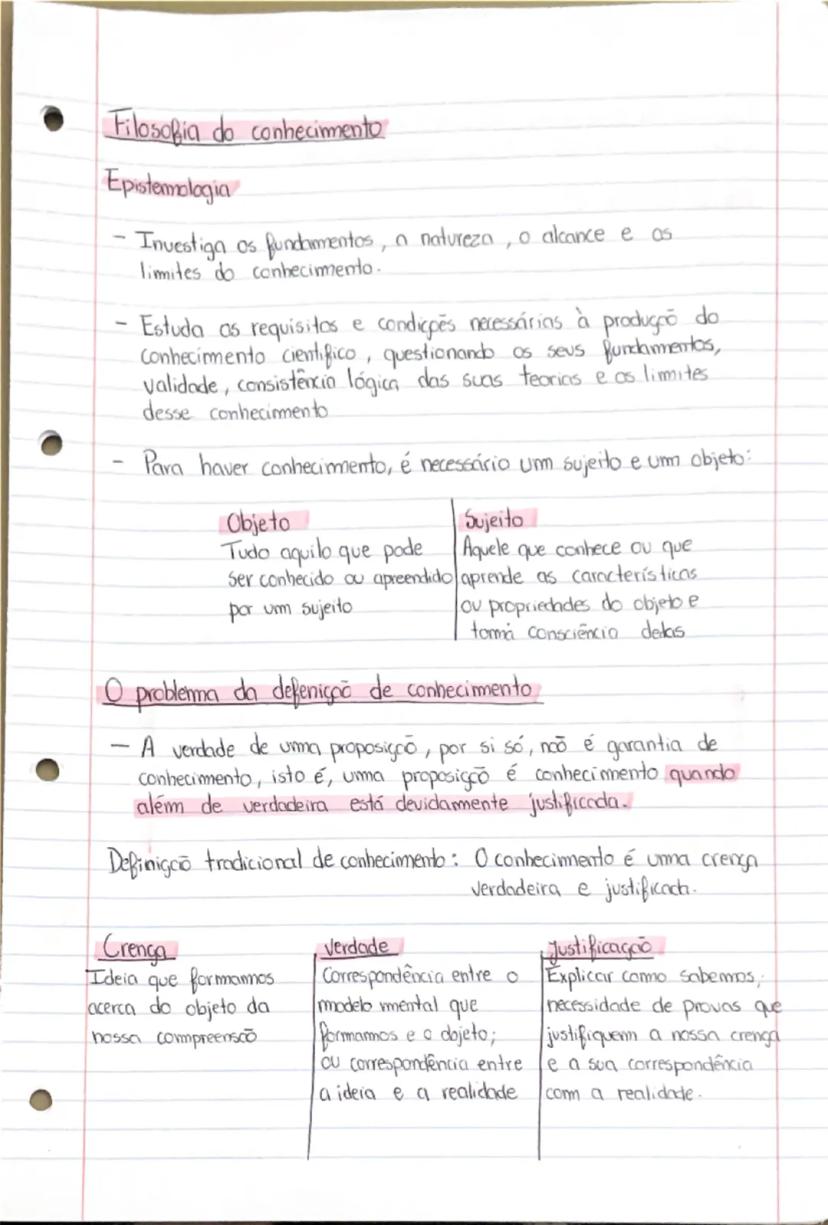 Filosofia do conhecimento
Epistemologia
- Investiga os fundamentos, a natureza, o alcance e os
limites do conhecimento.
- Estuda os requisitos e condições necessárias à produção do
conhecimento cientifico, questionando os seus fundamentos,
validade, consistência lógica das suas teorias e os limites
desse conhecimento
- Para haver conhecimento, é necessário um sujeito e um objeto:
Objeto
Tudo aquilo que pode
ser conhecido ou apreendido
por um sujeito
Sujeito
Aquele que conhece ou que
aprende as características
ou propriedades do objeto e
toma consciência delas
O problema da defenição de conhecimento
- A verdade de uma proposição, por si só, não é garantia de
conhecimento, isto é, uma proposição é conhecimento quando
além de verdadeira está devidamente justificada.
Definição tradicional de conhecimento: O conhecimento é uma crença
verdadeira e justificada.
Crença
Ideia que formamos
acerca do objeto da
nossa compreensão
Verdade
Correspondência entre o
modelo mental que
formamos e o objeto;
ou correspondência entre
a ideia e a realidade
Justificação
Explicar como sabemos,
necessidade de provas que
justifiquem a nossa crença
e a sua correspondência
com a realidade.